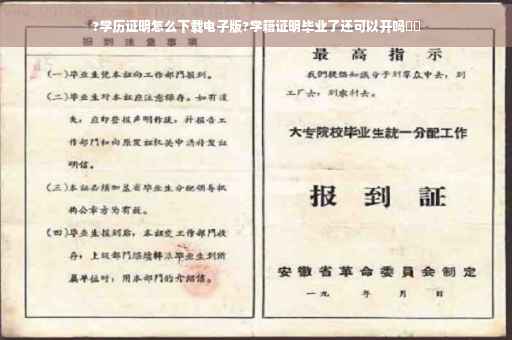 ?学历证明怎么下载电子版?学籍证明毕业了还可以开吗
报到注意事项
(一)毕业生凭本证向工作部门报到。
(二)毕业生对本证应注意保存。如有遗
失,应即登报声明作废,并报告工
作部门和向原发证机关申请补发证
明信。
(三)本证必须加盖省毕业生分配领导机
构公章方为有效。
(四)毕业生报到后,本证交工作部门收
存;上级部门继续转派毕业生到所
属单位时,用本部门的介绍信。
最高指示
我们提倡知识分子到群众中去,到
工厂去,到农村去。
大专院校毕业生统一分配工作
报到证
安徽省革命委员会制定
一九 年 月 日